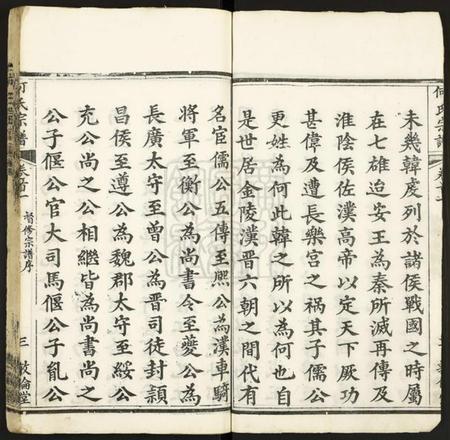 何氏宗譜
未幾韓虔列於諸侯戰國之時屬
在七雄迨安王為秦所滅再傳及
淮陰侯佐漢高帝以定天下厥功
甚偉及遭長樂宮之禍其子儒公
更姓為何此韓之所以為何也自
是世居金陵漢晉六朝之間代有
名宦儒公五傳至熙公為漢車騎
將軍至衡公為尚書令至夔公為
長廣太守至曾公為晉司徒封頴
昌侯至遵公為魏郡太守至綏公
充公尚之公相繼皆為尚書尚之
公子偃公官大司馬偃公子胤公
何氏宗譜 卷首 督修宗譜序 三 敦倫堂